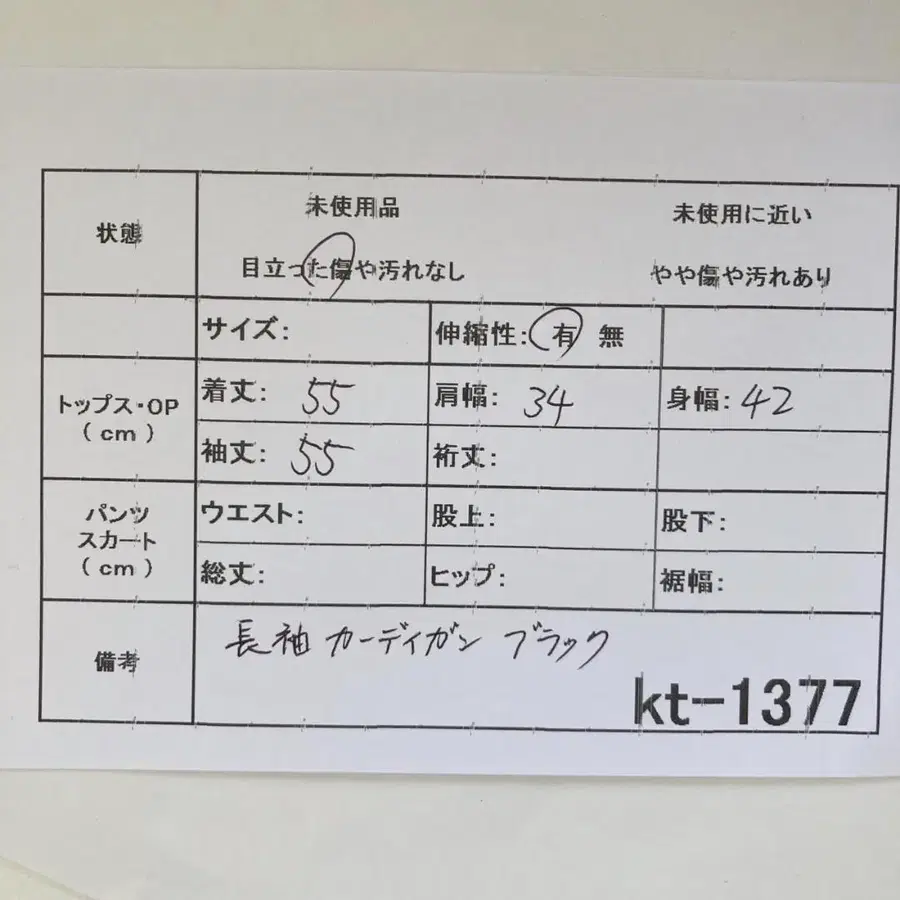 状態
未使用品 未使用に近い
目立った傷や汚れなし やや傷や汚れあり
サイズ: 伸縮性: 有 無
トップス・OP
( cm )
着丈: 55 肩幅: 34 身幅: 42
袖丈: 55 裄丈:
パンツ
スカート
( cm )
ウエスト: 股上: 股下:
総丈: ヒップ: 裾幅:
備考
長袖 カーディガン ブラック
kt-1377